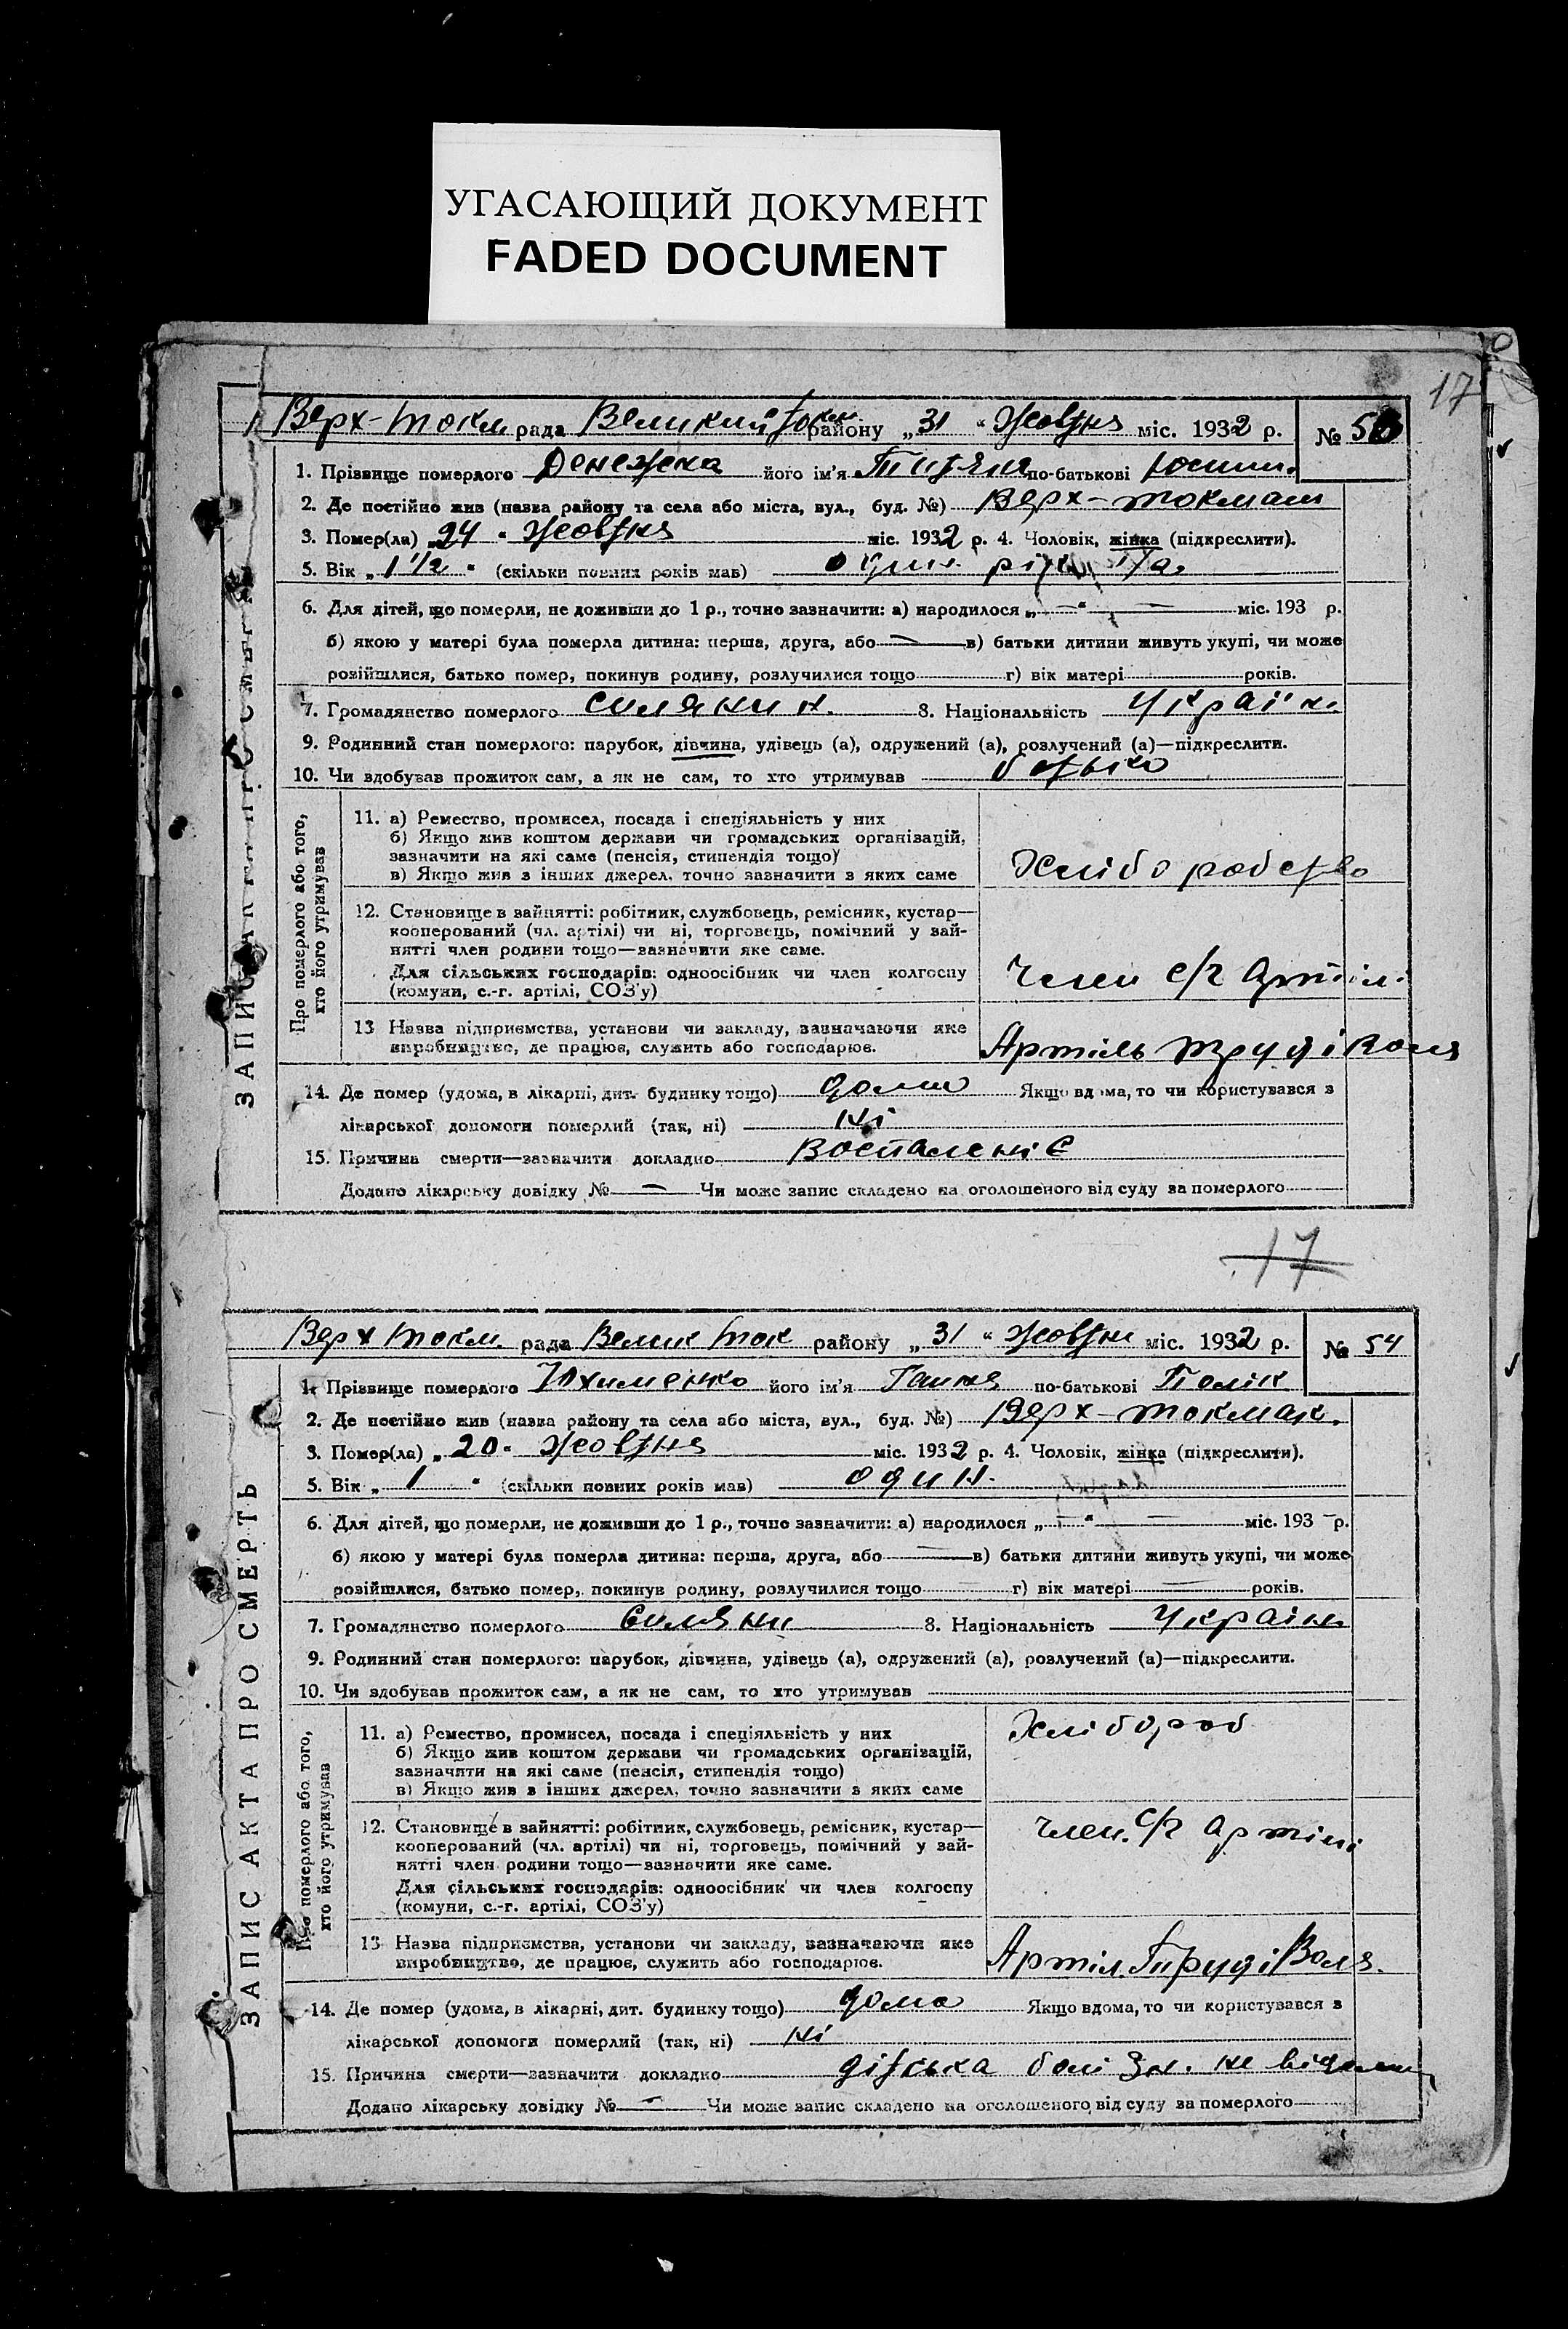 УГАСАЮЩИЙ ДОКУМЕНТ
FADED DOCUMENT
17
Верх-Токм рада Великий Токм району „31“ Жовтня міс. 1932 р. №
1. Прізвище померлого його ім'я по-батькові
2. Де постійно жив (назва району та села або міста, вул., буд. №) Верх-токмак
3. Помер(ла) „24“ Жовтня міс. 1932 р. 4. Чоловік, жінка (підкреслити).
5. Вік „1½“ (скільки повних років мав) один рік
6. Для дітей, що померли, не доживши до 1 р., точно зазначити: а) народилося „—“ — міс. 193 р.
б) якою у матері була померла дитина: перша, друга, або — в) батьки дитини живуть укупі, чи може
розійшлися, батько помер, покинув родину, розлучилися тощо г) вік матері років.
7. Громадянство померлого селянин. 8. Національність Україн.
9. Родинний стан померлого: парубок, дівчина, удівець (а), одружений (а), розлучений (а)—підкреслити.
10. Чи здобував прожиток сам, а як не сам, то хто утримував батько
ЗАПИС АКТА ПРО СМЕРТЬ
Про померлого або того,
хто його утримував
11. а) Ремество, промисел, посада і спеціяльність у них
б) Якщо жив коштом держави чи громадських організацій,
зазначити на які саме (пенсія, стипендія тощо)
в) Якщо жив з інших джерел, точно зазначити з яких саме
Хліборобство
12. Становище в зайнятті: робітник, службовець, ремісник, кустар—
кооперований (чл. артілі) чи ні, торговець, помічний у зай-
нятті член родини тощо—зазначити яке саме.
Для сільських господарів: одноосібник чи член колгоспу
(комуни, с.-г. артілі, СОЗ'у)
Член с/г артілі
13 Назва підприємства, установи чи закладу, зазначаючи яке
виробництво, де працює, служить або господарює.
Артіль Труд і Воля
14. Де помер (удома, в лікарні, дит. будинку тощо) дома Якщо вдома, то чи користувався з
лікарської допомоги померлий (так, ні) ні
15. Причина смерти—зазначити докладно Воспаленіє
Додано лікарську довідку № — Чи може запис складено на оголошеного від суду за померлого
17
Верх Токм. рада Велик Ток району „31“ Жовтня міс. 1932 р. № 54
1. Прізвище померлого Юхименко його ім'я Ганна по-батькові
2. Де постійно жив (назва району та села або міста, вул., буд. №) Верх-токмак.
3. Помер(ла) „20“ Жовтня міс. 1932 р. 4. Чоловік, жінка (підкреслити).
5. Вік „1“ (скільки повних років мав) один.
6. Для дітей, що померли, не доживши до 1 р., точно зазначити: а) народилося „—“ — міс. 193 — р.
б) якою у матері була померла дитина: перша, друга, або — в) батьки дитини живуть укупі, чи може
розійшлися, батько помер, покинув родину, розлучилися тощо — г) вік матері — років.
7. Громадянство померлого Селянин 8. Національність Україн.
9. Родинний стан померлого: парубок, дівчина, удівець (а), одружений (а), розлучений (а)—підкреслити.
10. Чи здобував прожиток сам, а як не сам, то хто утримував
ЗАПИС АКТА ПРО СМЕРТЬ
Про померлого або того,
хто його утримував
11. а) Ремество, промисел, посада і спеціяльність у них
б) Якщо жив коштом держави чи громадських організацій,
зазначити на які саме (пенсія, стипендія тощо)
в) Якщо жив з інших джерел, точно зазначити з яких саме
Хлібороб
12. Становище в зайнятті: робітник, службовець, ремісник, кустар—
кооперований (чл. артілі) чи ні, торговець, помічний у зай-
нятті член родини тощо—зазначити яке саме.
Для сільських господарів: одноосібник чи член колгоспу
(комуни, с.-г. артілі, СОЗ'у)
член. с/г артілі
13 Назва підприємства, установи чи закладу, зазначаючи яке
виробництво, де працює, служить або господарює.
Артіл. Труд і Воля.
14. Де помер (удома, в лікарні, дит. будинку тощо) дома Якщо вдома, то чи користувався з
лікарської допомоги померлий (так, ні) ні
15. Причина смерти—зазначити докладно дітська болізн. не відома
Додано лікарську довідку № — Чи може запис складено на оголошеного від суду за померлого